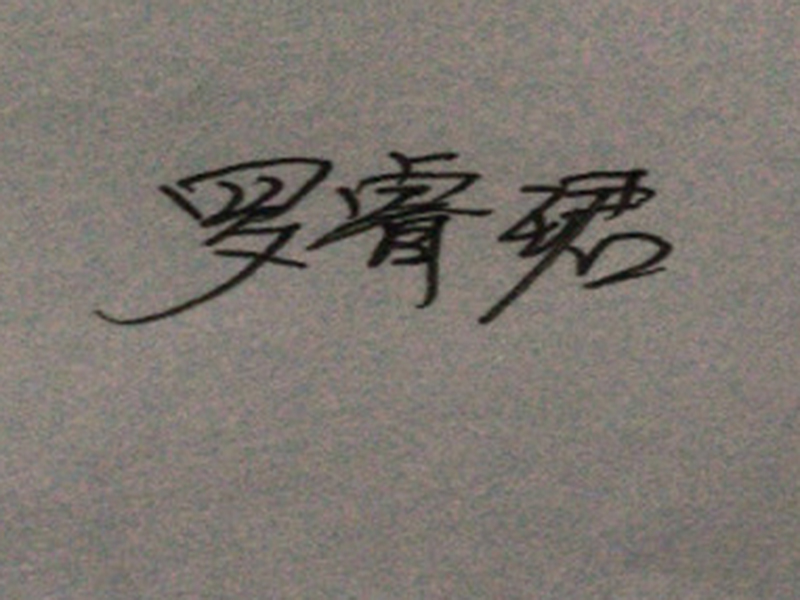 罗睿珺